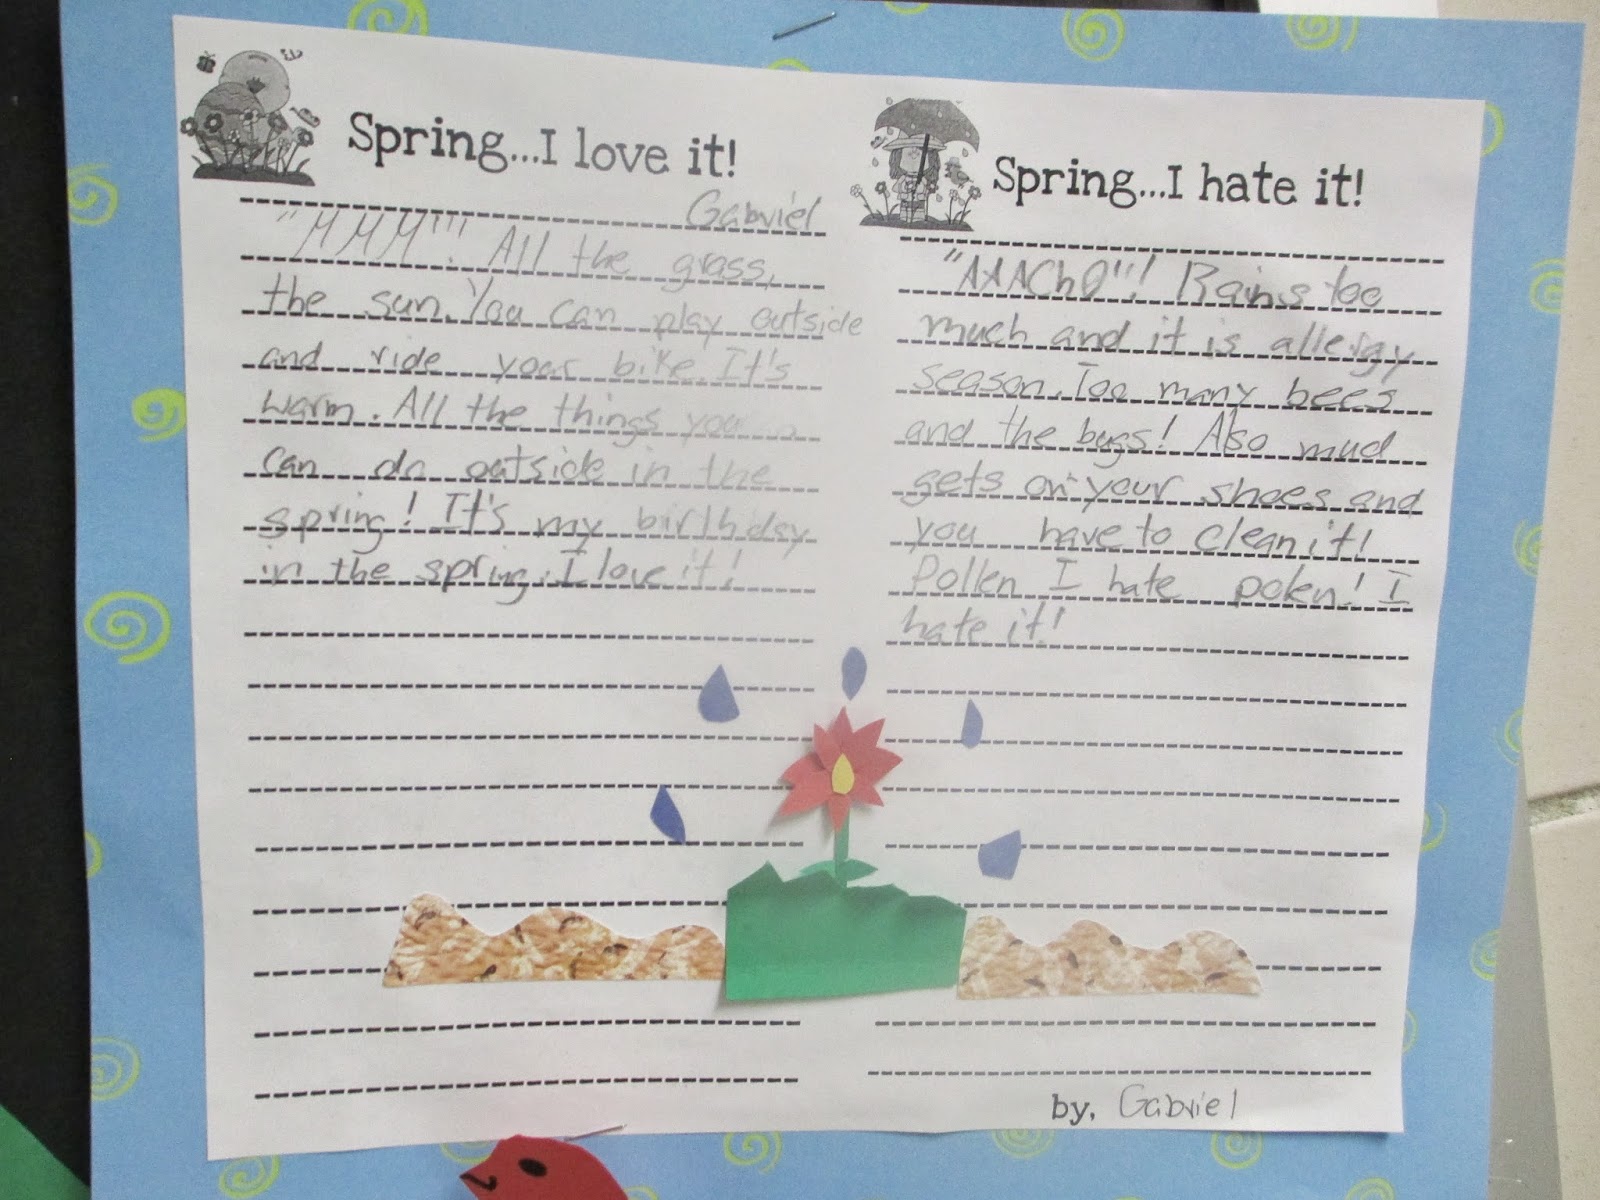 Spring...I love it!
Gabriel
"MMM"! All the grass,
the sun. You can play outside
and ride your bike. It's
warm. All the things you
can do outside in the
spring! It's my birthday
in the spring. I love it!
Spring...I hate it!
"AAAChO"! Rains too
much and it is allergy
season. Too many bees
and the bugs! Also mud
gets on your shoes and
you have to clean it!
Pollen I hate polen! I
hate it!
by, Gabriel